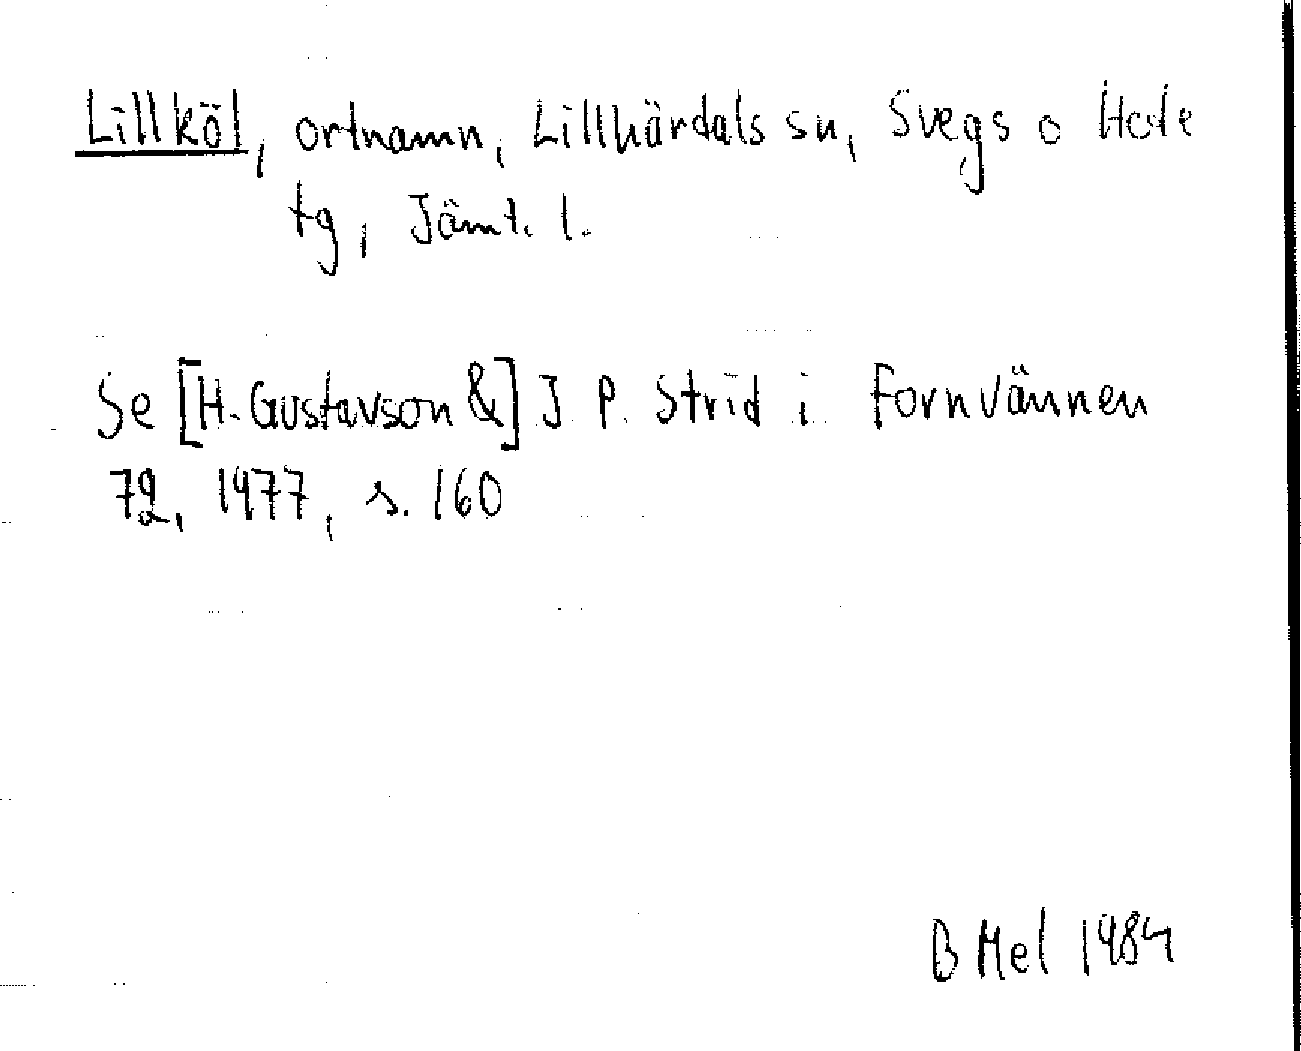 Lillköl, ortnamn, Lillhärdals sn, Svegs o Hede
tg, Jämt. l.
Se [H. Gustavson &] J P. Strid i Fornvännen
72, 1977, s. 160
B Mel 1984